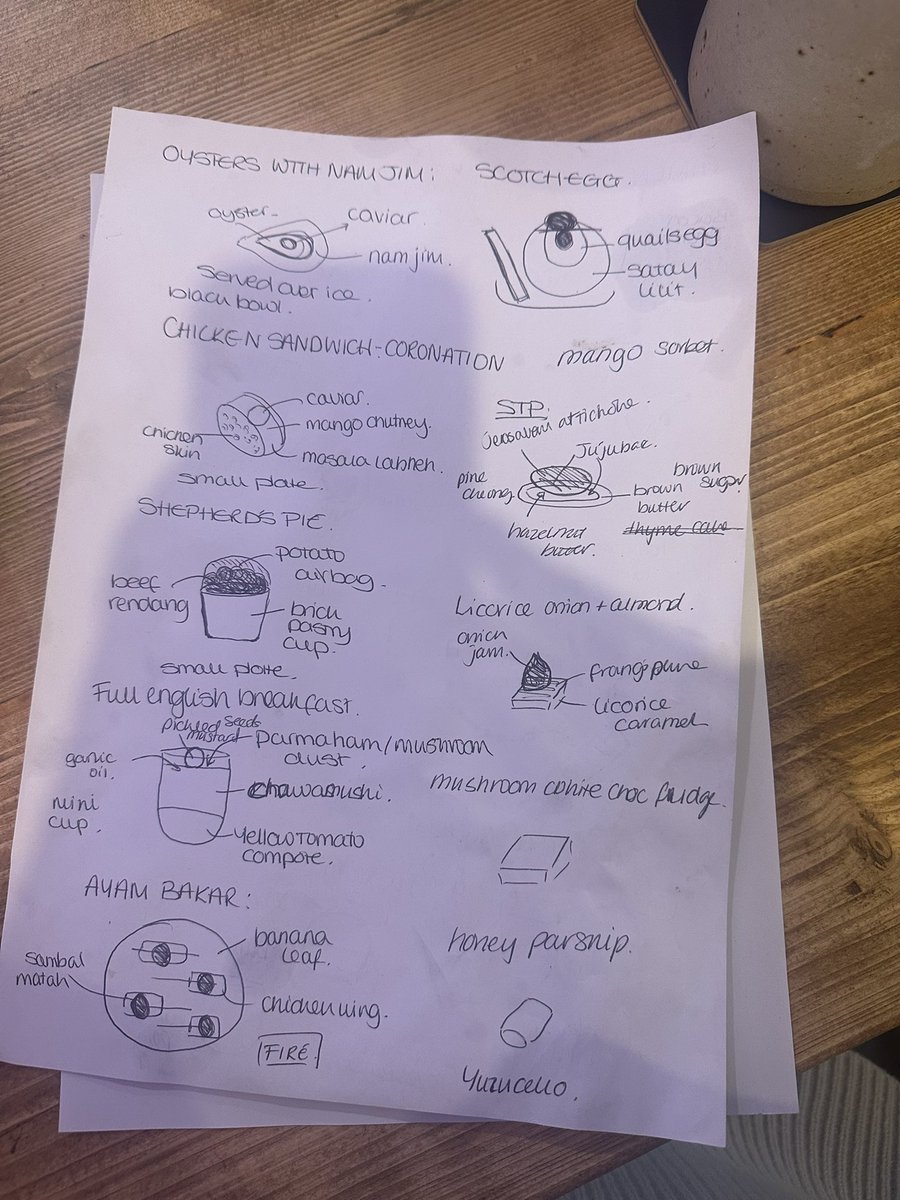 OYSTERS WITH NAM JIM:
oyster
caviar.
nam jim.
Served over ice.
black bowl.
CHICKEN SANDWICH-CORONATION
caviar.
mango chutney.
chicken
skin
masala labneh.
small plate.
SHEPHERD'S PIE.
potato
airbag.
beef
rendang
brick
pastry
cup.
small plate.
Full english breakfast.
pickled
seeds
mustard
parmaham/mushroom
dust.
garlic
oil.
chawamushi.
mini
cup.
yellow tomato
compote.
AYAM BAKAR:
banana
leaf.
sambal
matah
chicken wing.
FIRE.
SCOTCH EGG.
quails egg
satay
lilit.
mango sorbet.
STP.
jerusalem artichoke.
Jujubae.
brown
sugar
brown
butter
hazelnut
butter.
thyme cake
Licorice onion + almond.
onion
jam.
frangipane
licorice
caramel
mushroom white choc fudge.
honey parsnip.
Yuzucello.